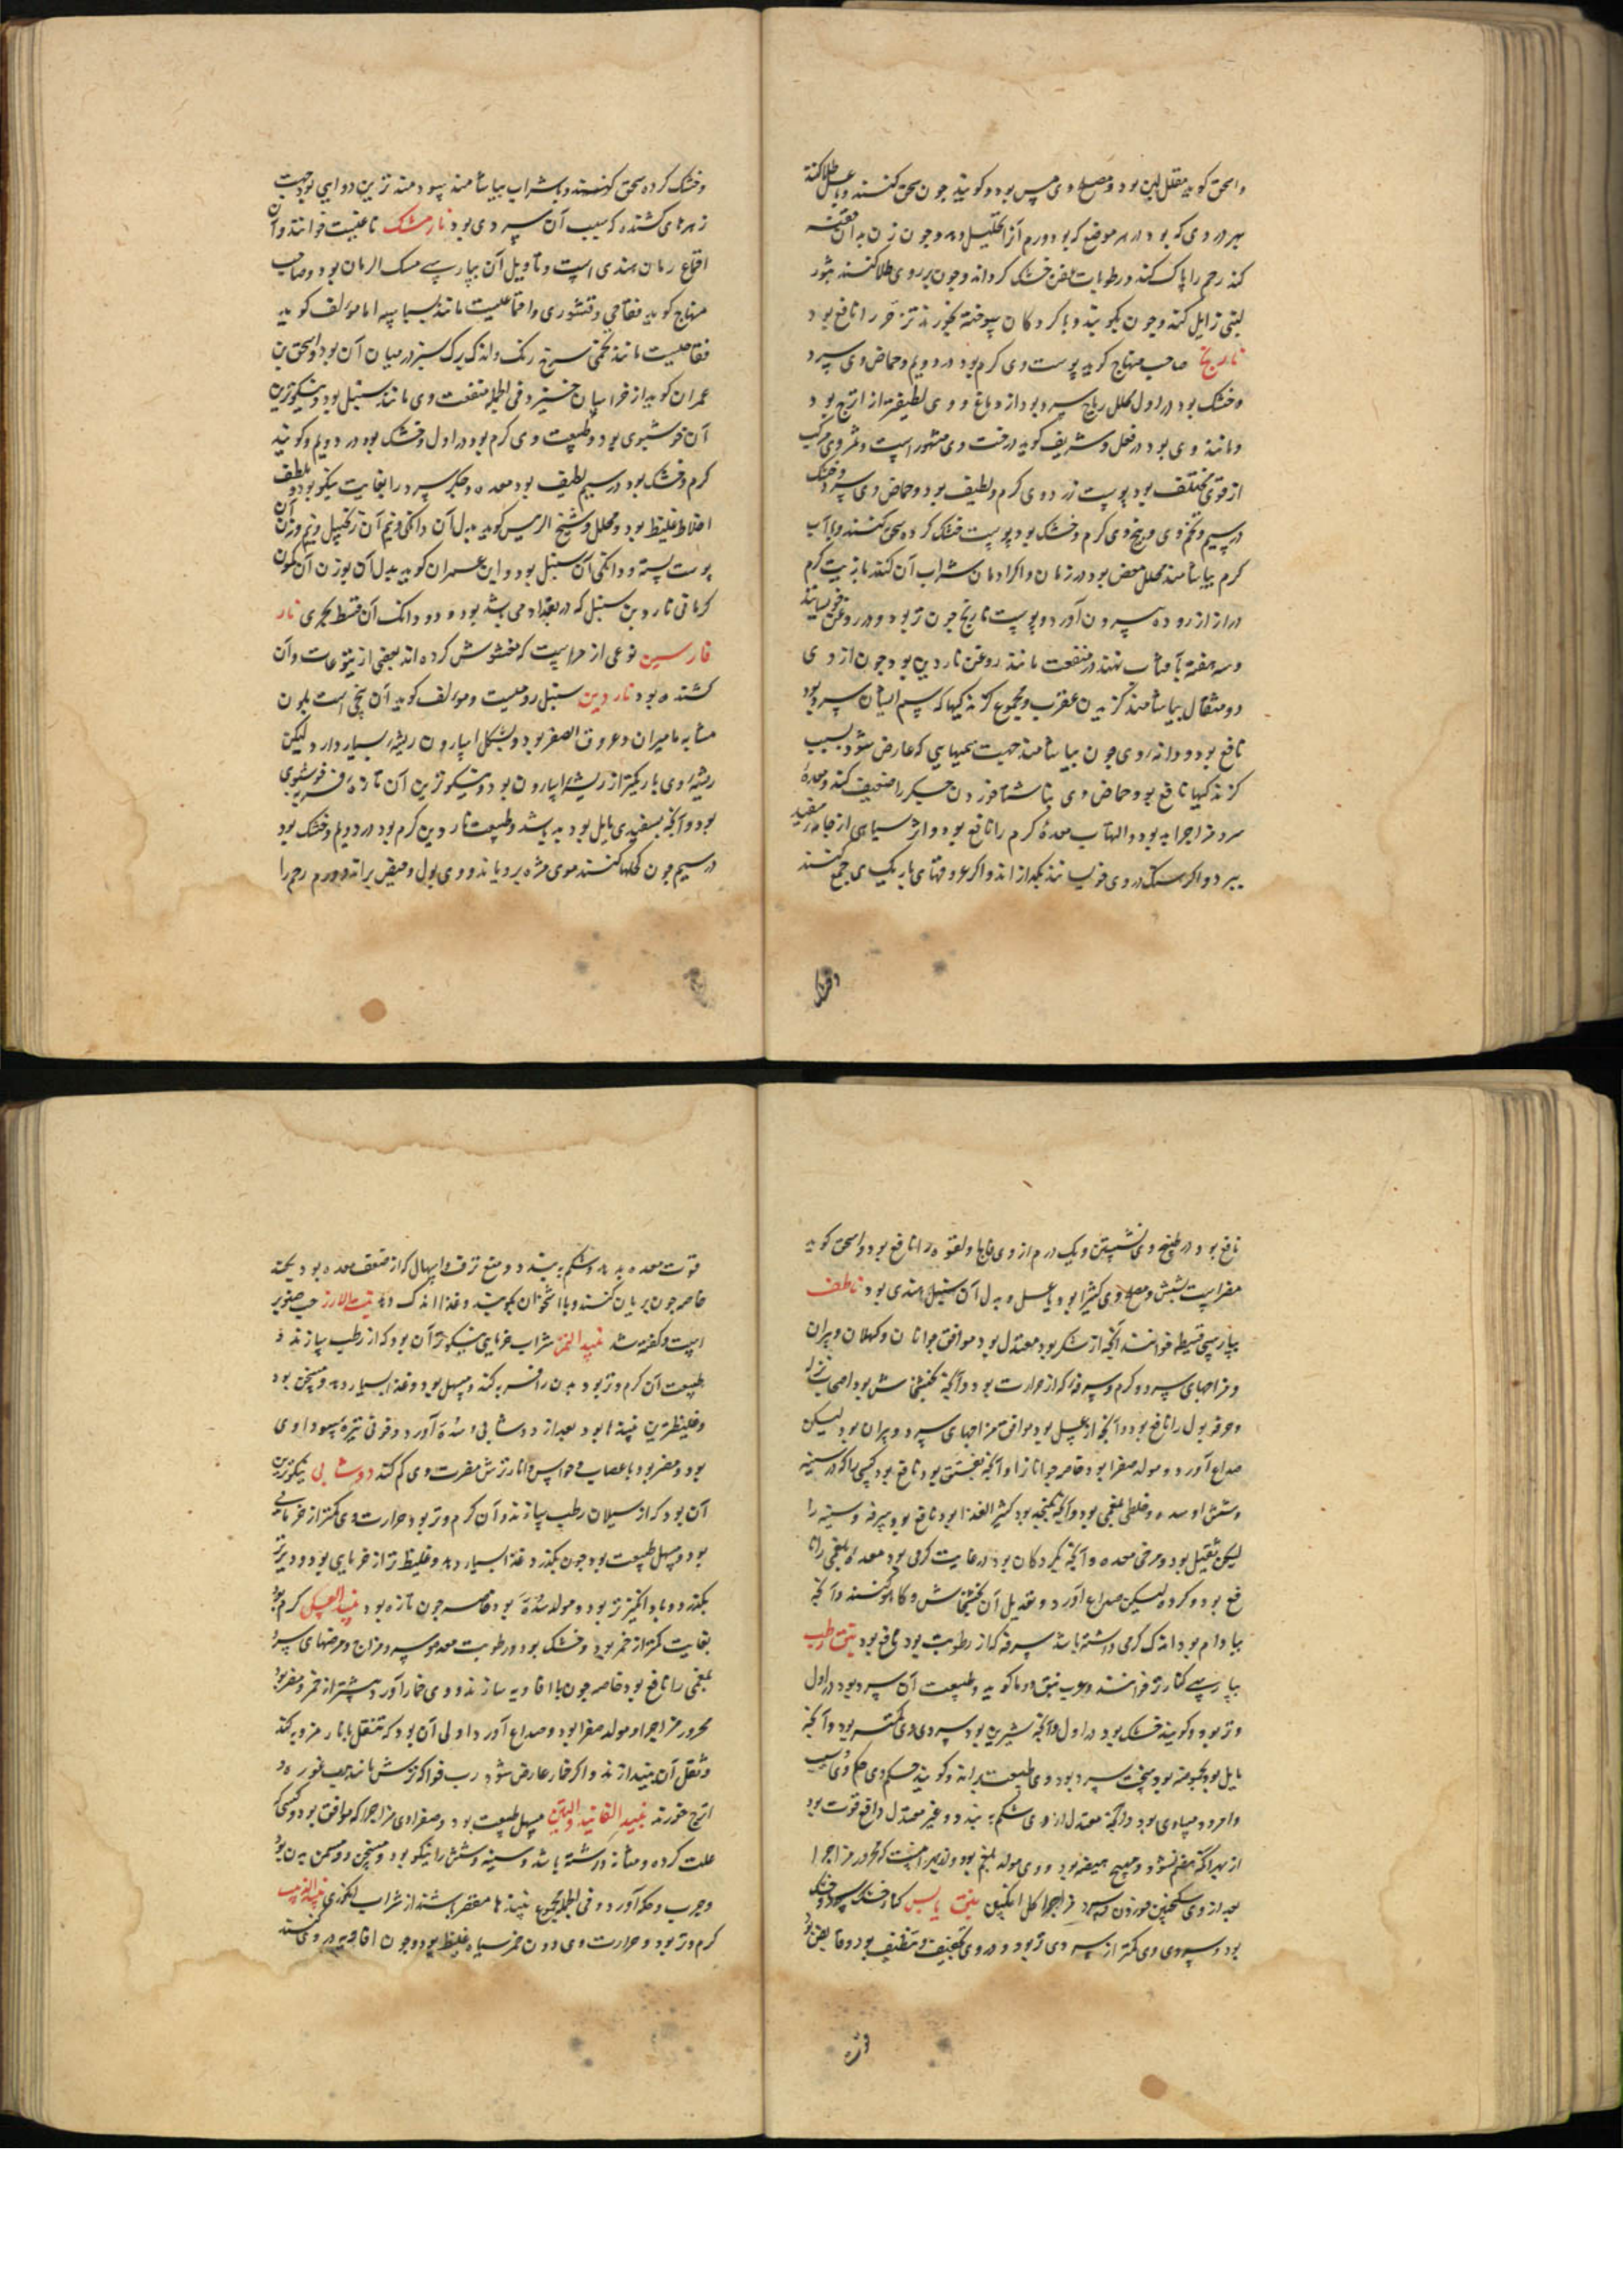 واسحق کوید مقل لین بود و مصلح وی مس بود و کویند چون سحق کنند و با عسل طلا کنند
بهر دردی که بود در هر موضع که بود و ورم آنرا تحلیل دهد و چون زن به آن حقنه
کند رحم را پاک کند و رطوبات عفن خشک کرداند و چون بر روی طلا کنند بثور
لبنی زایل کند و چون بکوبند و با کردکان سوخته بخورند تزخر را نافع بود
نارنج صاحب منهاج کوید پوست وی کرم بود در دویم و حماض وی سرد
و خشک بود در اول محلل ریاح سرد بود از دماغ و وی لطیفتر از اترج بود
و مانند وی بود در فعل و شریف کوید درخت وی مشهور است و ثمر وی مرکب
از قوی مختلف بود پوست زرد وی کرم و لطیف بود و حماض وی سرد و خشک
در سیم و تخم وی و بیخ وی کرم و خشک بود پوست خشک کرده سحق کنند و با آب
کرم بیاشامند محلل مغص بود در زمان و اکر ادمان شراب آن کنند با زیت کرم
دراز از روده بیرون آورد و پوست نارنج چون تر بود و در روغن خیسانند
و سه هفته بآفتاب نهند در منفعت مانند روغن ناردین بود چون از وی
دو مثقال بیاشامند کزیدن عقرب و مجموع کزندکیها که سم ایشان سرد بود
نافع بود و دانه وی چون بیاشامند جهت سمهایی که عارض شود بسبب
کزندکیها نافع بود و حماض وی بناشتا خوردن جکر را ضعیف کند و معدهٔ
سرد مزاج را بد بود و التهاب معدهٔ کرم را نافع بود و اثر سیاهی از جامهٔ سفید
ببرد و اکر سنک در وی خیسانند بکدازاند و اکر عروقهای باریک وی جمع کنند
وخشک
و خشک کرده سحق کنند و با شراب بیاشامند سودمندترین دوایی بود جهت
زهرهای کشنده که سبب آن سردی بود نارمشک ناغیست خوانند و آن
اقماع رمان هندی است و تأویل آن بپارسی مسک الرمان بود و صاحب
منهاج کوید فقاحی و قشوری و اقماعیست مانند بسباسه اما مؤلف کوید
فقاحیست مانند تخمی سرخ رنک و اندک برک سبز در میان آن بود و اسحق بن
عمران کوید از خراسان خیزد و فی الجمله منفعت وی مانند سنبل بود و نیکوترین
آن خوشبوی بود و طبیعت وی کرم بود در اول و خشک بود در دویم و کویند
کرم و خشک بود در سیم لطیف بود معده و جکر سرد را بغایت نیکو بود و ملطف
اخلاط غلیظ بود و محلل و شیخ الرییس کوید بدل آن دانکی و نیم آن زنجبیل و نیم وزن آن
پوست پسته و دانکی آن سنبل بود و ابن عمران کوید بدل آن بوزن آن کمون
کرمانی ناردین سنبل که در بغداد می باشد بود و دو دانک آن قسط بحری نار
فارسین نوعی از حراست که مغشوش کرده اند ببعضی از یتوعات و آن
کشنده بود ناردین سنبل رومیست و مؤلف کوید آن بیخی است بلون
مشابه مامیران و عروق الصفر بود و بشکل اسارون ریشهٔ بسیار دارد لیکن
ریشهٔ وی باریکتر از ریشهٔ اسارون بود و نیکوترین آن تازهٔ فربه خوشبوی
بود و آنچه بسفیدی مایل بود بد باشد و طبیعت ناردین کرم بود در دویم و خشک بود
در سیم چون کحلها کنند موی مژه برویاند و وی بول و حیض براند و ورم رحم را
نافع بود در طبیخ وی نشستن و یک درم از وی فالج و لقوه را نافع بود و اسحق کوید
مضر است بشش و مصلح وی کثیرا بود با عسل و بدل آن سنبل هندی بود ناطف
بپارسی قبیطه خوانند آنچه از شکر بود معتدل بود موافق جوانان و کهلان و پیران
و مزاجهای سرد و کرم و سرفه که از حرارت بود و آنچه بخشخاش بود اصحاب نزله
و حرقه بول را نافع بود و آنچه از عسل بود موافق مزاجهای سرد و پیران بود لیکن
صداع آورد و مولد صفرا بود خاصه جوانانرا و آنچه بفستق بود نافع بود کسی را که در سینه
و شش او سده و خلطی بلغمی بود و آنچه بکنجد بود کثیر الغذا بود نافع بود سرفه و سینه را
لیکن ثقیل بود و مرخی معده و آنچه بکردکان بود در غایت کرمی بود معدهٔ بلغمی را نا
فع بود و کرده لیکن صداع آورد و تعدیل آن بخشخاش و کاهو کنند و آنچه
ببادام بود اندک کرمی داشته باشد سرفه که از رطوبت بود نافع بود نبق رطب
بپارسی کنار تر خوانند و عرب نبق دوما کوید و طبیعت آن سرد بود در اول
و تر بود و کویند خشک بود در اول و آنچه شیرین بود سردی وی کمتر بود و آنچه
مایل بود بحموضه بود سخت سرد بود و وی طبیعت براند و کویند حکم وی حکم وی سیب
و امرود مساوی بود و آنچه معتدل از وی شکم ببندد و غیر معتدل دافع قوت بود
از بهر آنکه هضم نشود و مهیج هیضه بود و وی مولد بلغم بود و تدبیر آنست که محرور مزاج را
بعد از وی سکنجبین خوردن و سرد مزاج را کل انکبین نبق یابس کنار خشک سرد و خشک
بود و سردی وی کمتر از سردی تر بود و در وی تخفیف و تنظیف بود و قابض بود
قوت
قوت معده بدهد و شکم ببندد و منع نزف و اسهال که از ضعف معده بود بکند
خاصه چون بریان کنند و با استخوان بکوبند و غذا اندک دهد نبت الارز حب صنوبر
است و کفته شد نبیذ التمر شراب خرمایی نیکوتر آن بود که از رطب سازند و
طبیعت آن کرم و تر بود بدن را فربه کند و مسهل بود و غذا بسیار دهد و مسخن بود
و غلیظ ترین نبیذها بود بعد از دوشابی و سده آورد و خونی تیره سوداوی
بود و مضر بود باعصاب و حواس و انار ترش مضرت وی کم کند دوشابی نیکوترین
آن بود که از سیلان رطب سازند و آن کرم و تر بود حرارت وی کمتر از خرمایی
بود و مسهل طبیعت بود چون بکذرد غذا بسیار دهد و غلیظ تر از خرمایی بود و دیرتر
بکذرد و باد انکیزتر بود و مولد سده بود خاصه چون تازه بود نبیذ العسل کرم بود
بغایت کمتر از خمر بود و خشک بود و رطوبت معده و سرد مزاج و مرضهای سرد
بلغمی را نافع بود خاصه چون با افاویه سازند و وی خمار آورد بیشتر از خمر و مضر بود
محرور مزاج را و مولد صفرا بود و صداع آورد و اولی آن بود که تنقل بانار مز و به کنند
و ثقل آن بیندازند و اکر خمار عارض شود رب فواکه ترش مانند رب غوره و
اترج خورند نبیذ الفانید والتین مسهل طبیعت بود و صفراوی مزاج را که موافق بود و کسی که
علت کرده و مثانه داشته باشد و سینه و شش را نیکو بود و مسخن و مسمن بدن بود
و جرب و حکه آورد و فی الجمله مجموع نبیذها مضعفتر باشند از شراب انکوری نبیذ الزبیب
کرم و تر بود و حرارت وی دون خمر سیاه غلیظ بود و چون افاویه در وی کنند